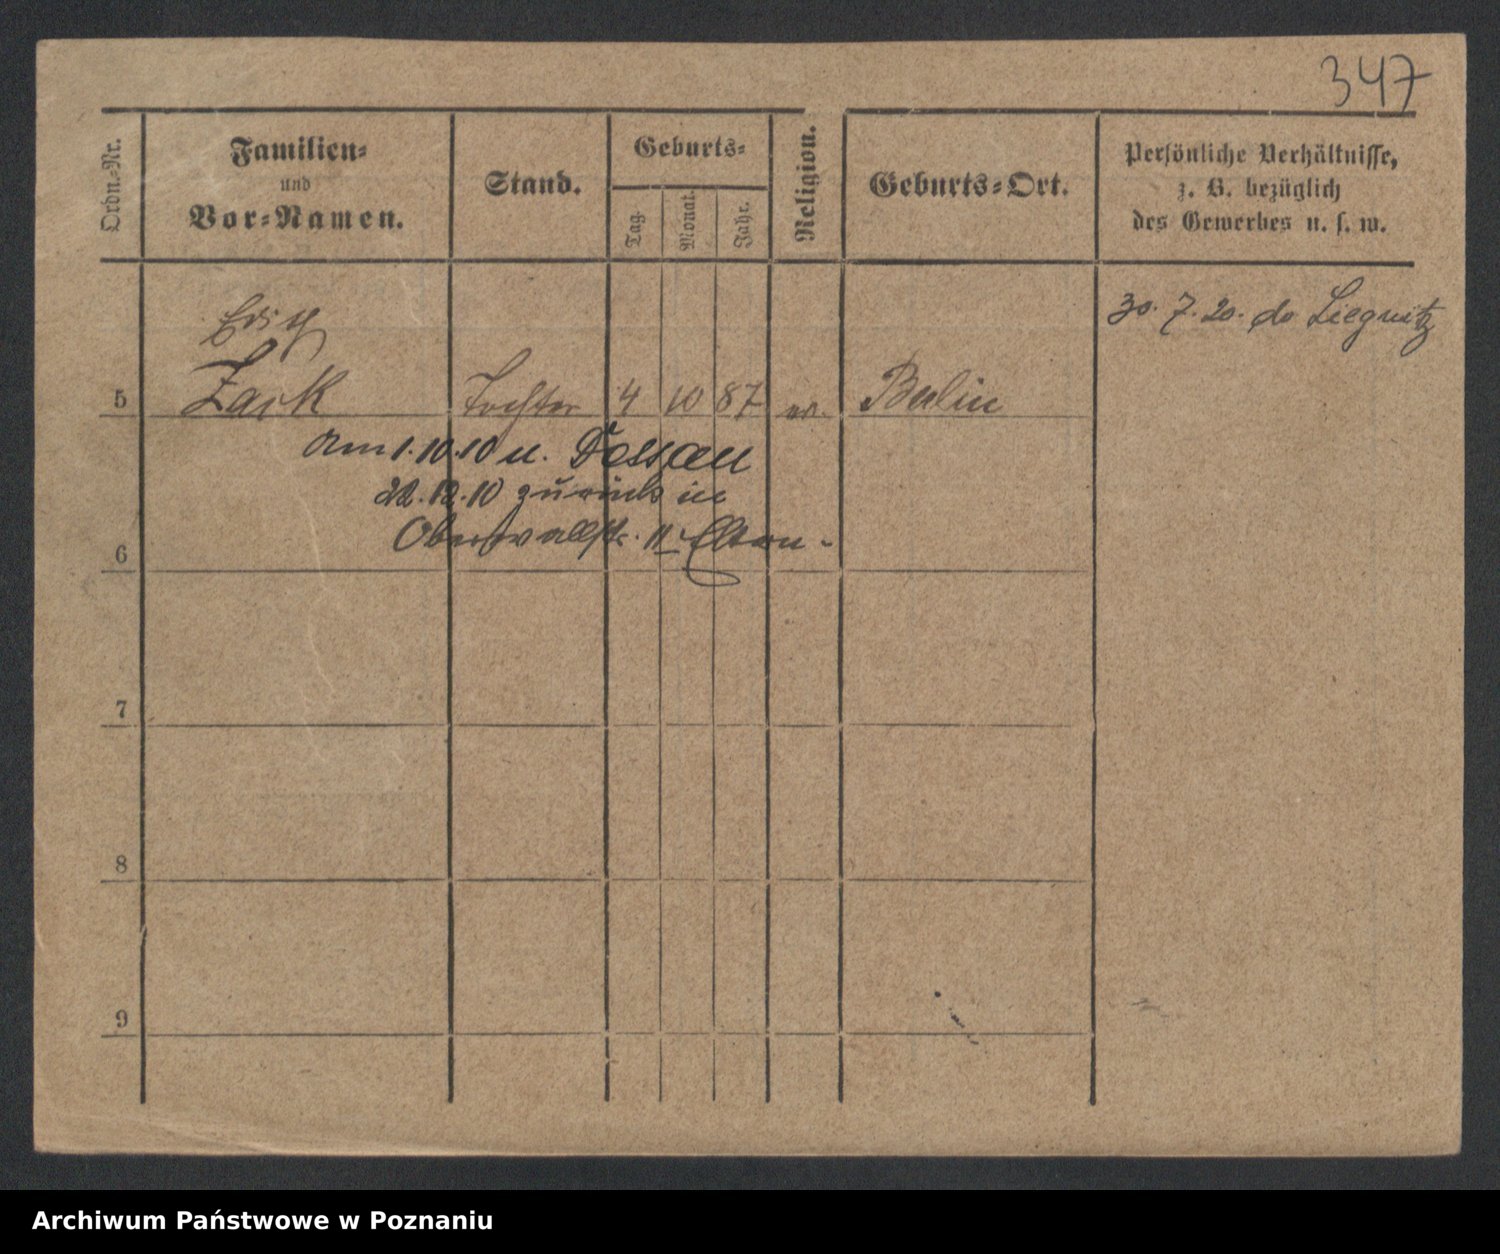 347
Ordn.-Nr.
Familien-
und
Vor-Namen.
Stand.
Geburts-
Tag.
Monat.
Jahr.
Religion.
Geburts-Ort.
Persönliche Verhältnisse,
z. B. bezüglich
des Gewerbes u. s. w.
30. 7. 20. do Liegnitz
5 Zack Tochter 4 10 87 Berlin
Am 1.10.10 n. Dessau
22.12.10 zurück in
6 Oberwallstr. 11 Eltern-
7
8
9
Archiwum Państwowe w Poznaniu